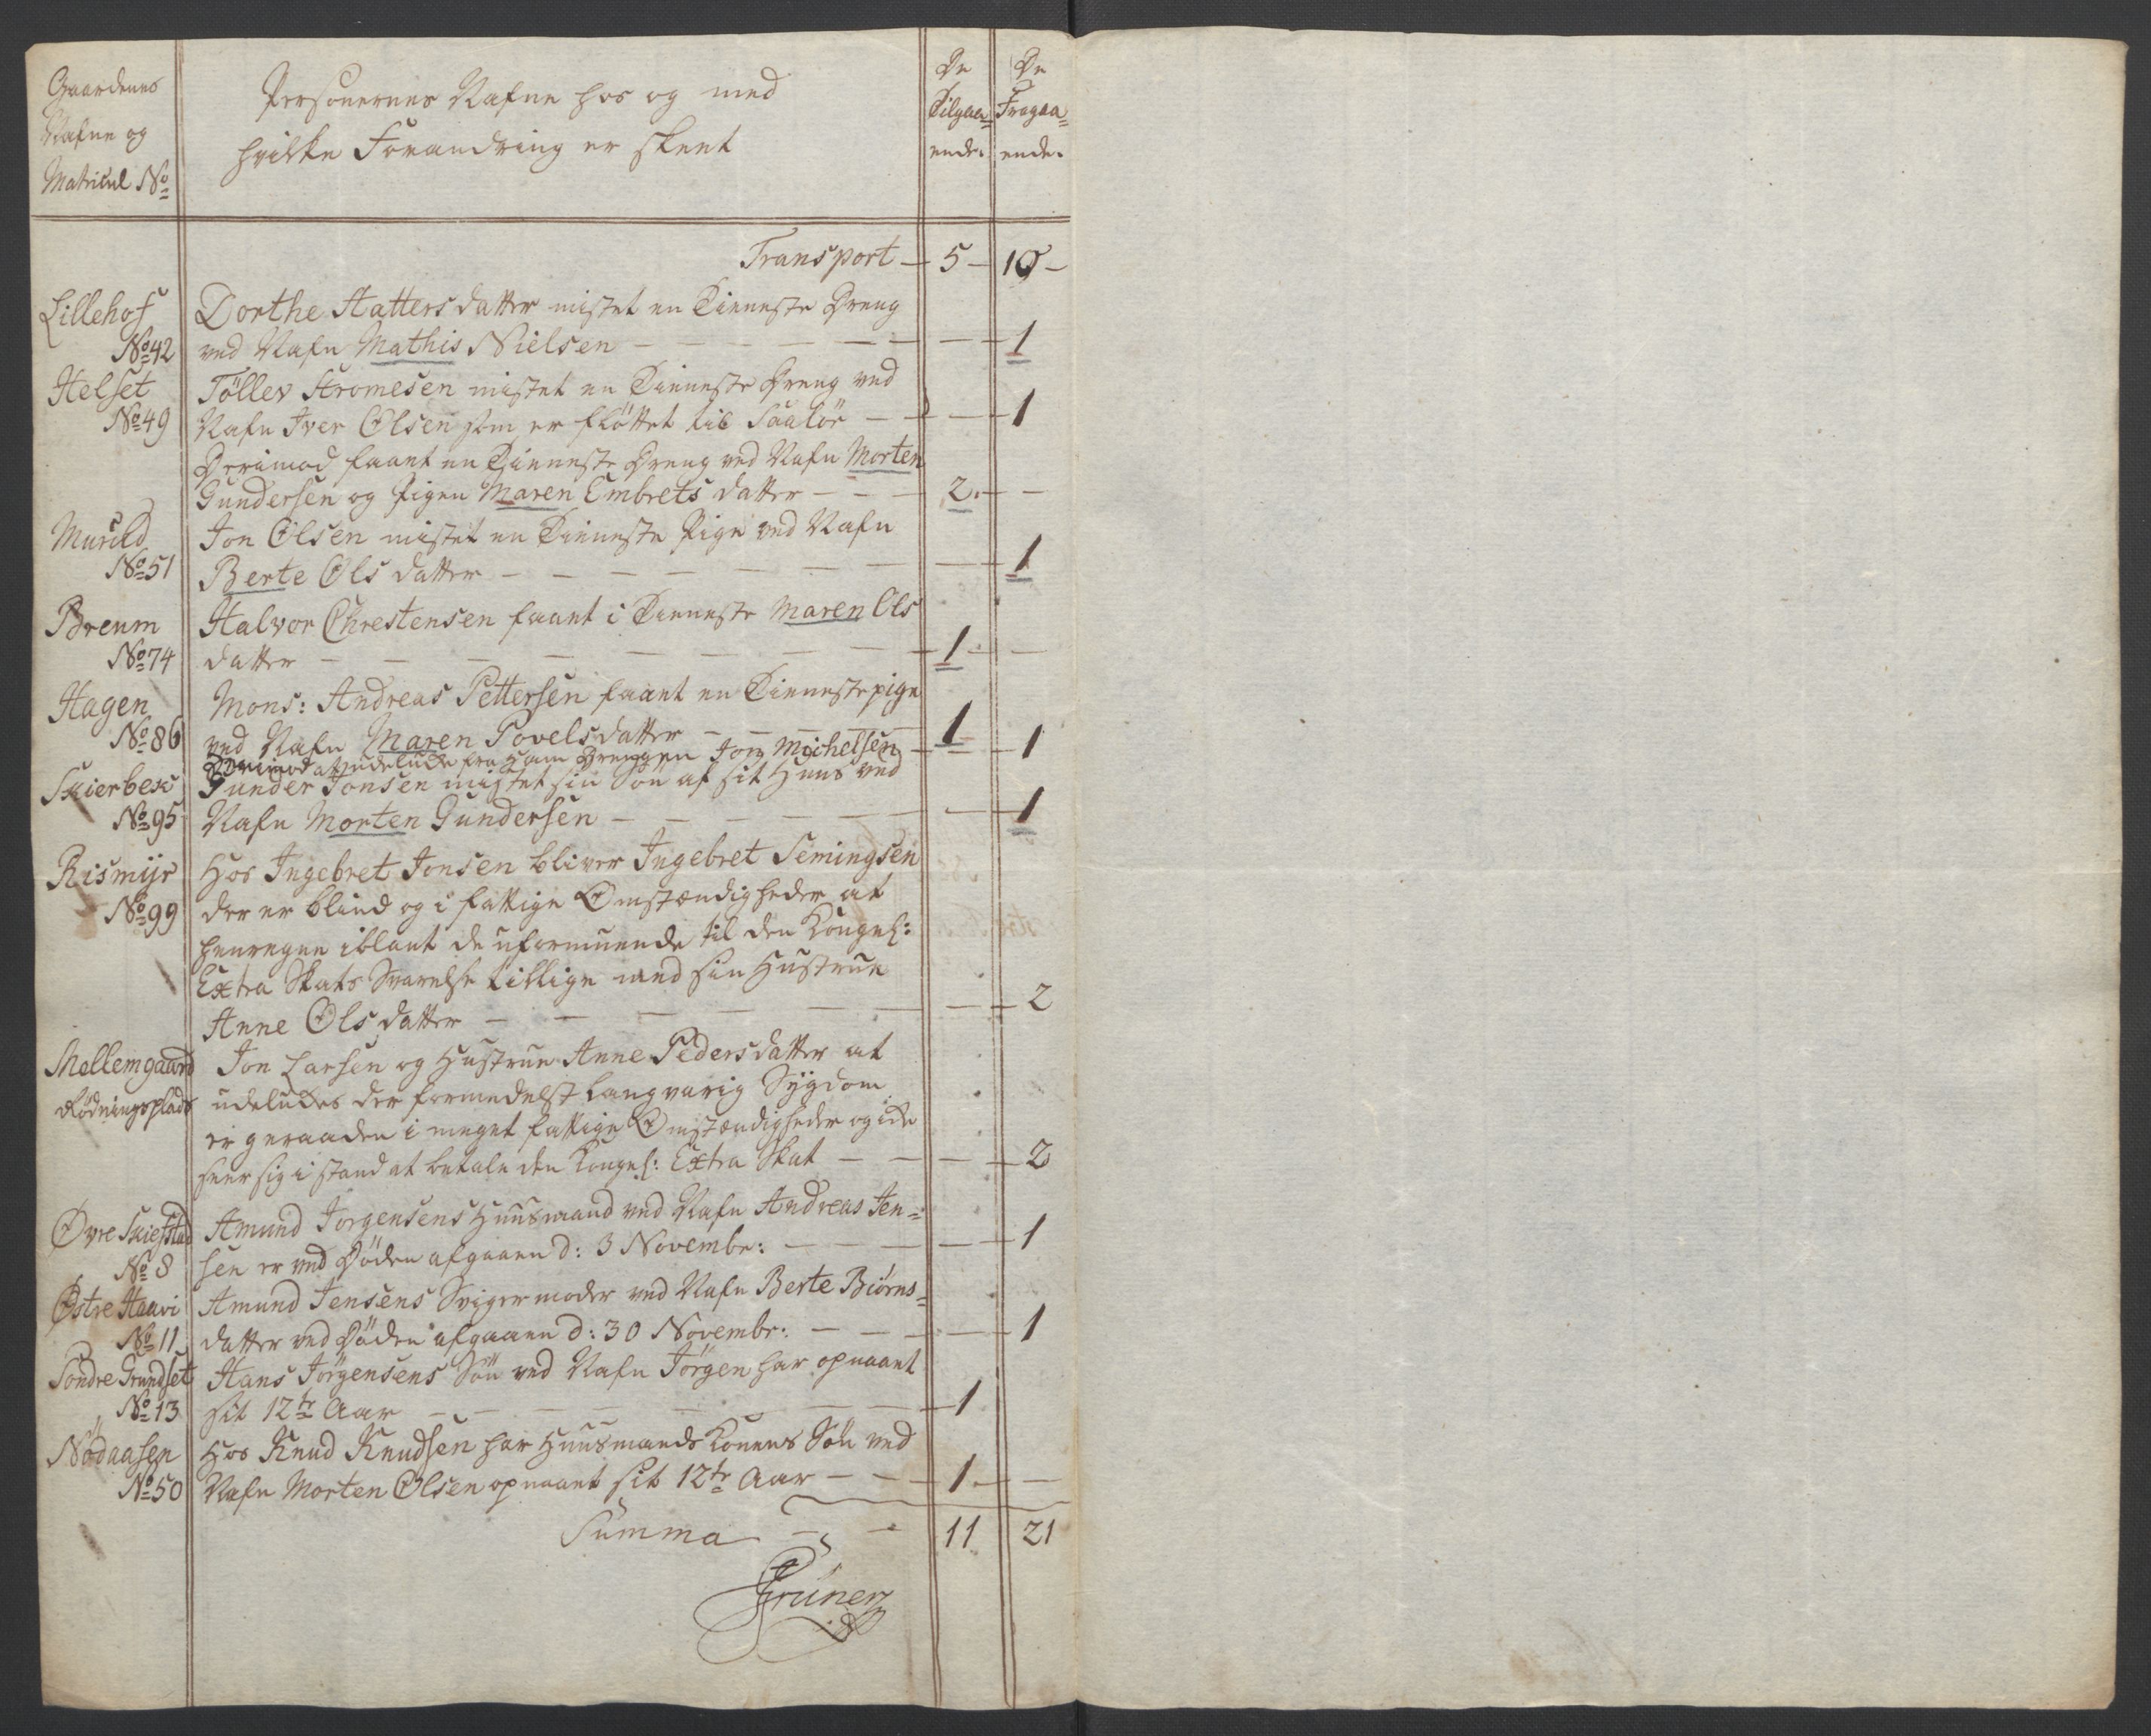 Gaardenes
Nafne og
Matricul No
Personernes Nafne hos og med
hvilke Forandring er skeet
De
Tilgaa=
ende.
De
Fragaa=
ende.
Transport — 5 — 10 —
Lillehof Dorthe Hattersdatter mistet en Tieneste Dreng
No 42 ved Nafn Mathis Nielsen — 1
Helset Töllev Stromesen mistet en Tieneste Dreng ved
No 49 Nafn Iver Olsen som er flöttet til Saalör — 1
Derimod faaet en Tieneste Dreng ved Nafn Morten
Gundersen og Pigen Maren Embrets datter — 2. —
Murild Jon Olsen mistet en Tieneste Pige ved Nafn
No 51 Berte Ols datter — 1
Breum Halvor Chrestensen faaet i Tieneste Maren Ols
No 74 datter — 1. —
Hagen Mons: Andreas Pettersen faaet en Tieneste pige
No 86 ved Nafn Maren Povelsdatter — 1
Derimod at udelukke fra ham Drengen Jon Michelsen — 1
Skierbek Gunder Jonsen mistet sin Sön af sit Huus ved
No 95 Nafn Morten Gundersen — 1
Rismijr Hos Ingebret Jonsen bliver Ingebret Semingsen
No 99 der er blind og i fattige Omstændigheder at
henregne iblant de uformuende til den Kongel:
Extra Skats Svarelse tillige med sin Hustrue
Anne Olsdatter — 2
Mellemgaard Jon Larsen og Hustrue Anne Pedersdatter at
Rödningsplads udelukkes der formedelst langvarig Sygdom
er geraaden i meget fattige Omstændigheder og ikke
seer sig i stand at betale den Kongel: Extra Skat — 2
Øvre Skiefstad Amund Jorgensens Huusmand ved Nafn Andreas Jen=
No 8 sen er ved Döden afgaaen d: 3 Novembr: — 1
Østre Haavi Amund Jensens Sviger moder ved Nafn Berte Biörns=
No 11 datter ved Döden afgaaen d: 30 Novembr: — 1
Söndre Grundset Hans Jörgensens Sön ved Nafn Jörgen har opnaaet
No 13 sit 12te Aar — 1
Nödaasen Hos Knud Knudsen har Huusmands Konens Sön ved
No 50 Nafn Morten Olsen opnaaet sit 12te Aar — 1. —
Summa — 11 21
Grüner